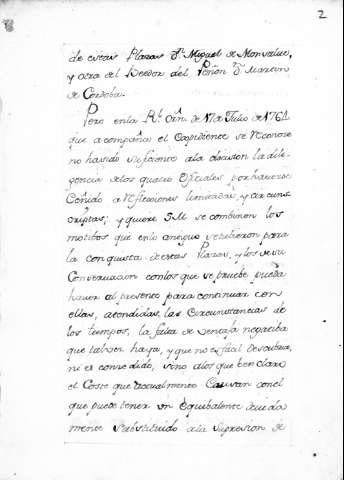 2
de estas Plazas Dn. Miguel de Monsalue,
y otra del Veedor del Peñon Dn. Martin
de Cordoba.
Pero en la Rl. Orn. de 17 de Julio de 1764
que acompaña el Expediente se reconose
no ha sido suficiente a la decision la dili-
gencia de los quatro Ofiziales por hauerse
Ceñido a reflexiones limitadas, y circuns-
criptas; y quiere S M se combinen los
motibos que en lo antiguo se tubieron para
la conquista de estas Plazas, y los de su
Conseruacion con los que se pruebe pueda
hauer al presente para continuar con
ellas, atendidas, las Circunstancias de
los tiempos, la falta de ventaja negatiba
que tal vez haya, y que no es facil descubrir,
ni es conocido, sino a los que ben claro
el Coste que actualmente Causan con el
que puede tener un Equibalente deuida
mente substituido a la supresion de